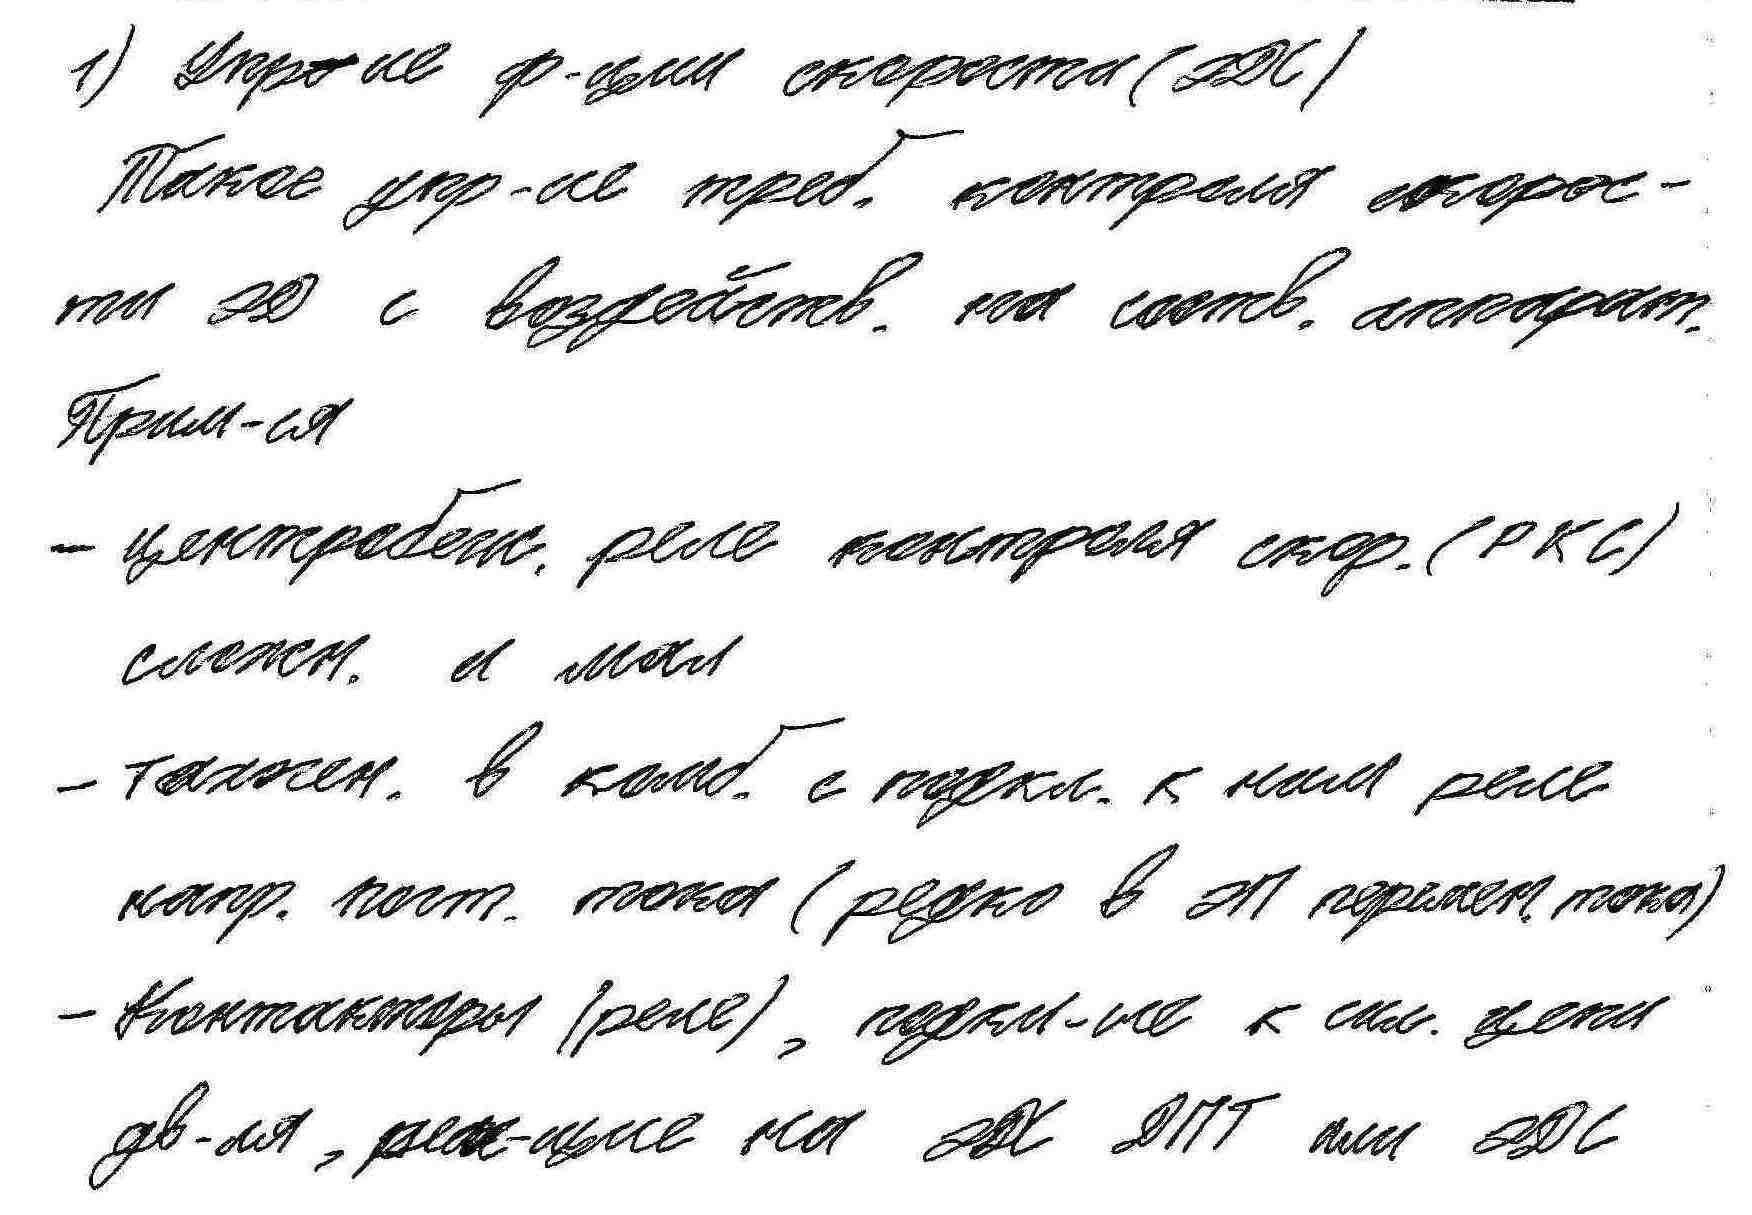 1) Упр-ие ф-ции скорости (ЭДС)
Такое упр-ие треб. контроля скорос-
ти ЭД с воздейств. на соотв. аппарат.
Прим-ся
- центробежн. реле контроля скор. (РКС)
сложн. и мал
- тахоген. в комб. с подкл. к ним реле
напр. пост. тока (редко в ЭП перемен. тока)
- Контакторы (реле), подкл-ые к сил. цепи
дв-ля, реаг-щие на ЭДС ДПТ или ЭДС